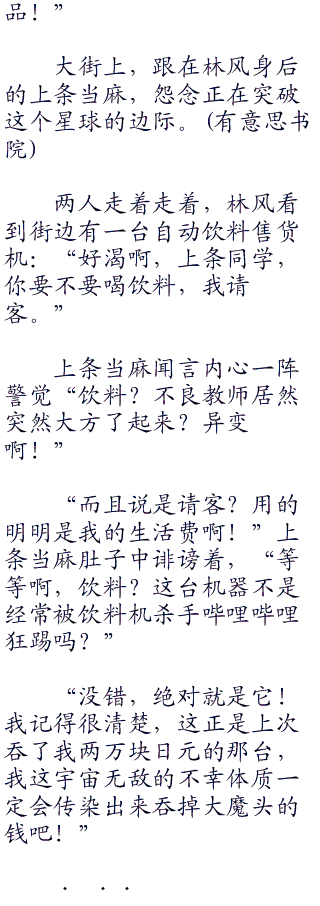 品！”
大街上，跟在林风身后
的上条当麻，怨念正在突破
这个星球的边际。(有意思书
院)
两人走着走着，林风看
到街边有一台自动饮料售货
机：“好渴啊，上条同学，
你要不要喝饮料，我请
客。”
上条当麻闻言内心一阵
警觉“饮料？不良教师居然
突然大方了起来？异变
啊！”
“而且说是请客？用的
明明是我的生活费啊！”上
条当麻肚子中诽谤着，“等
等啊，饮料？这台机器不是
经常被饮料机杀手哔哩哔哩
狂踢吗？”
“没错，绝对就是它！
我记得很清楚，这正是上次
吞了我两万块日元的那台，
我这宇宙无敌的不幸体质一
定会传染出来吞掉大魔头的
钱吧！”
．．．